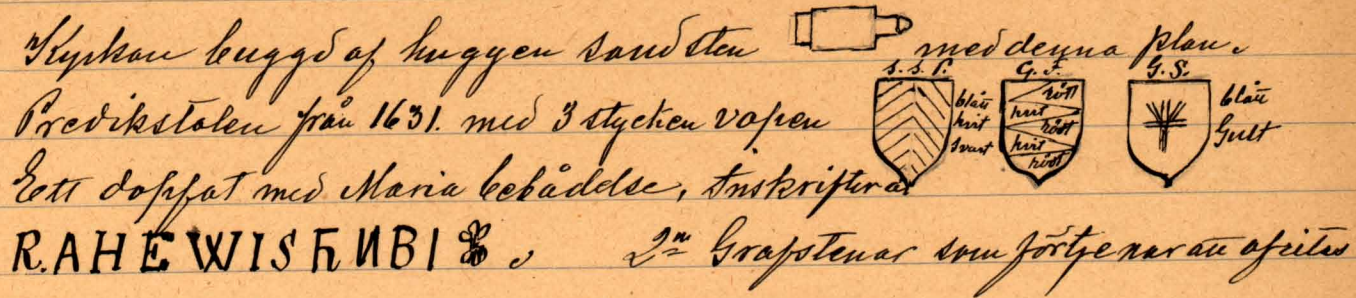 Kyrkan byggd af huggen sandsten med denna plan.
S. S. P. G. F. G. S.
Predikstolen från 1631. med 3 stycken vapen
blått hvit svart
rött hvit rött hvit rött
blått Gult
Ett dopfat med Maria bebådelse, Inskriften är
R.AHEWISHNBI. 2ne Grafstenar som förtjenar att afritas